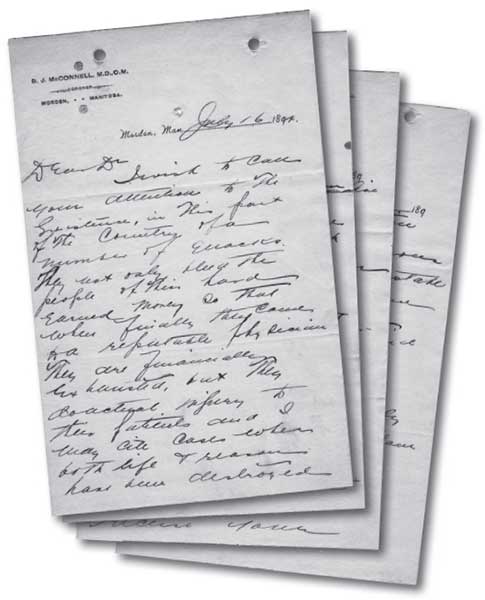 B. J. McCONNELL, M.D., C.M.
CORONER
MORDEN, - - MANITOBA.
Morden, Man. July 16 1894.
Dear Dr I wish to call
your attention to the
existence, in this part
of the Country of a
number of quacks.
They not only bleed the
people of their hard
earned money so that
when finally they come
to a reputable physician
they are financially
exhausted, but they
do actual injury to
their patients and I
may cite cases where
both life & reason
have been destroyed
189
state
Yours